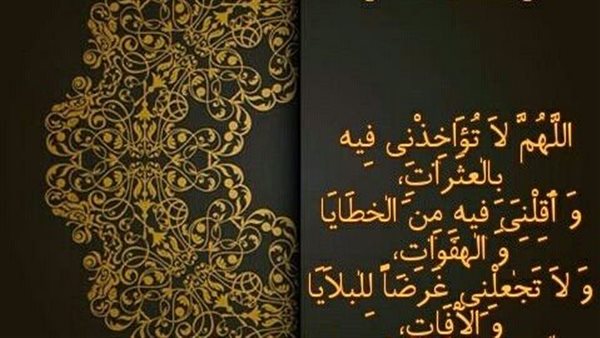 اللَّهُمَّ لاَ تُؤَاخِذْنِى فِيهِ
بِالْعَثَرَاتِ،
وَ أَقِلْنِى فِيهِ مِنَ الْخَطَايَا
وَ الْهَفَوَاتِ،
وَ لاَ تَجْعَلْنِى غَرَضاً لِلْبَلاَيَا
وَ الْآفَاتِ،